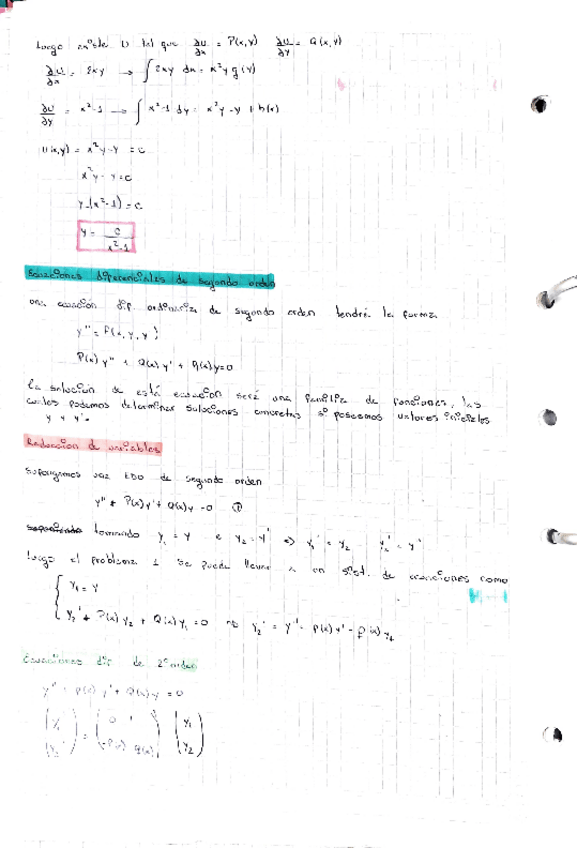 Luego existe U tal que ∂U/∂x = P(x,y) ∂U/∂y = Q(x,y)
∂U/∂x = 2xy → ∫ 2xy dx = x²y g(y)
∂U/∂y = x²-1 → ∫ x²-1 dy = x²y - y + h(x)
U(x,y) = x²y - y = c
x²y - y = c
y(x²-1) = c
y = c/x²-1
Ecuaciones diferenciales de segundo orden
una ecuación dif. ordinaria de segundo orden tendrá la forma
y'' = f(x, y, y')
P(x) y'' + Q(x) y' + R(x) y = 0
la solución de está ecuación será una familia de funciones, las
cuales podemos determinar soluciones concretas si poseemos valores iniciales
y y y'.
Reducción de variables
Supongamos una EDO de segundo orden
y'' + P(x) y' + Q(x) y = 0 ①
tomando y₁ = y e y₂ = y' => y₁' = y₂ y₂' = y''
luego el problema 1 se puede llevar a un sist. de ecuaciones como
y₁ = y
y₂' + P(x) y₂ + Q(x) y₁ = 0
Ecuaciones dif. de 2º orden
y'' + p(x) y' + Q(x) y = 0